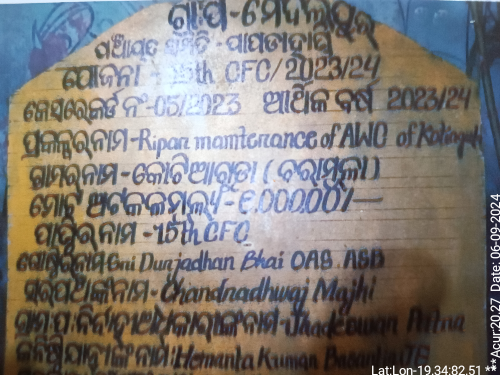 ଗ୍ରା:ପ-ମେଦଲପୁର୍
ପଞ୍ଚାୟତ ସମିତି - ପାପଡାହାଣ୍ଡି
ଯୋଜନା - 15th CFC/2023/24
କେସ୍‌ରେକର୍ଡ ନଂ-05/2023 ଆର୍ଥିକ ବର୍ଷ 2023/24
ପ୍ରକଳ୍ପର୍‌ନାମ-Ripan maintenance of AWC of
ଗ୍ରାମର୍‌ନାମ-କୋଟିଆଗୁଡା (ବରାମ୍କଲା)
ମୋଟ୍ଟ ଅଟକଳମୂଲ୍ୟ-
ପାଣ୍ଠିର୍‌ନାମ -15th CFC
Sri Durjadhan Bhai OAS. ASB
ସରପଞ୍ଚଙ୍କନାମ-Chandradhwaj Majhi
ଗ୍ରାମ:ପ:ନିର୍ବାହୀଅଧିକାରୀଙ୍କନାମ-
କନିଷ୍ଠଯନ୍ତ୍ରୀଙ୍କନାମ:Hemanta Kumar
Lat:Lon-19.34:82.51 **
Acur:20.27 Date: 06-09-2024